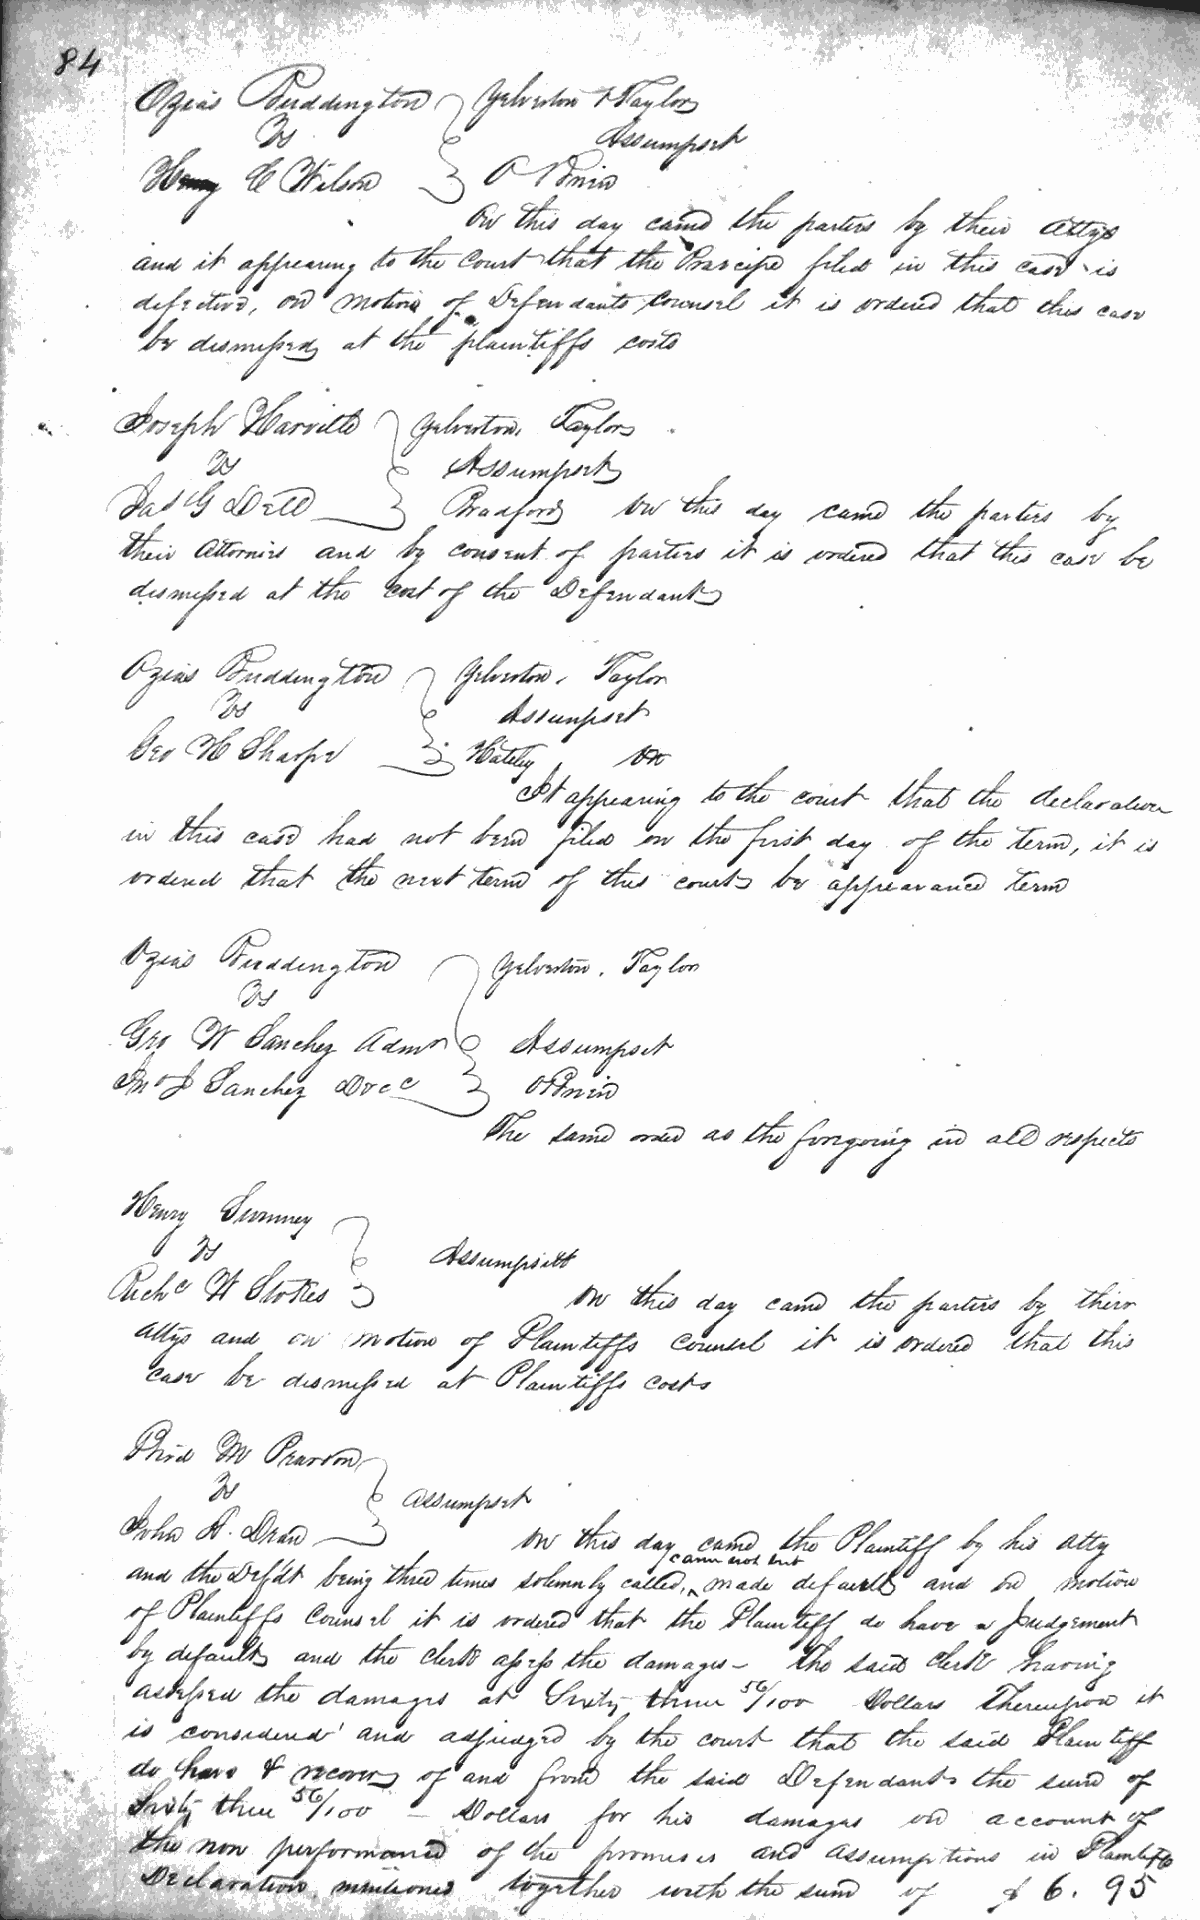 84
Ozias Buddington } Yelverton & Taylor
Vs Assumpsit
Henry C Wilson } O Brien
On this day came the parties by their Attys
and it appearing to the Court that the Praecipe filed in this case is
defective, on motion of Defendants Counsel it is ordered that this case
be dismissed at the plaintiffs costs
Joseph Harville } Yelverton, Taylor
Vs Assumpsit
Jas G Dell } Bradford On this day came the parties by
their Attornies and by consent of parties it is ordered that this case be
dismissed at the cost of the Defendant
Ozias Buddington } Yelverton, Taylor
Vs Assumpsit
Geo H Sharpe } Hateley On
It appearing to the court that the declaration
in this case had not been filed on the first day of the term, it is
ordered that the next term of this court be appearance term
Ozias Buddington } Yelverton, Taylor
Vs
Geo W Sanchez Admr } Assumpsit
Jno J Sanchez Decc } OBrien
The same order as the foregoing in all respects
Henry Swinney
Vs } Assumpsitt
Richd W Stokes On this day came the parties by their
Attys and on motion of Plaintiffs Counsel it is ordered that this
case be dismissed at Plaintiffs costs
M Pearson
Vs } Assumpsit
John A. Dean On this day came the Plaintiff by his Atty
came not but
and the Defdt being three times solemnly called, made default and on motion
of Plaintiffs Counsel it is ordered that the Plaintiff do have a Judgement
by default and the clerk assess the damages – The said clerk having
assessed the damages at Sixty three 56/100 Dollars Thereupon it
is considered and adjudged by the court that the said Plaintiff
do have & recover of and from the said Defendant the sum of
Sixty three 56/100 – Dollars for his damages on account of
the non performance of the promises and assumptions in Plaintiffs
Declaration mentioned together with the sum of $ 6. 95